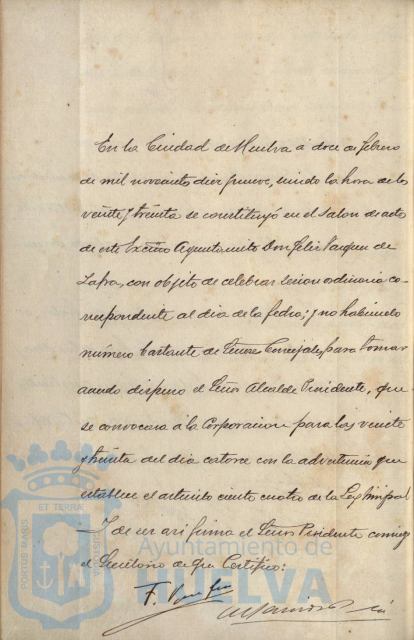 En la Ciudad de Huelva á doce de febrero
de mil novecientos diez y nueve, siendo la hora de las
veinte y treinta se constituyó en el Salon de actos
de este Excmo Ayuntamiento Don Felix Vazquez de
Zafra, con objeto de celebrar sesion ordinaria co-
rrespondiente al dia de la fecha; y no habiendo
número bastante de Señores Concejales para tomar
acuerdo dispuso el Señor Alcalde Presidente, que
se convocara á la Corporacion para las veinte
y treinta del dia catorce con la advertencia que
establece el articulo ciento cuatro de la Ley Municipal
Y de ser asi firma el Señor Presidente conmigo
el Secretario de que Certifico:
F.
PORTUS MARIS
ET TERRAE
CUSTODIA
Ayuntamiento de
HUELVA